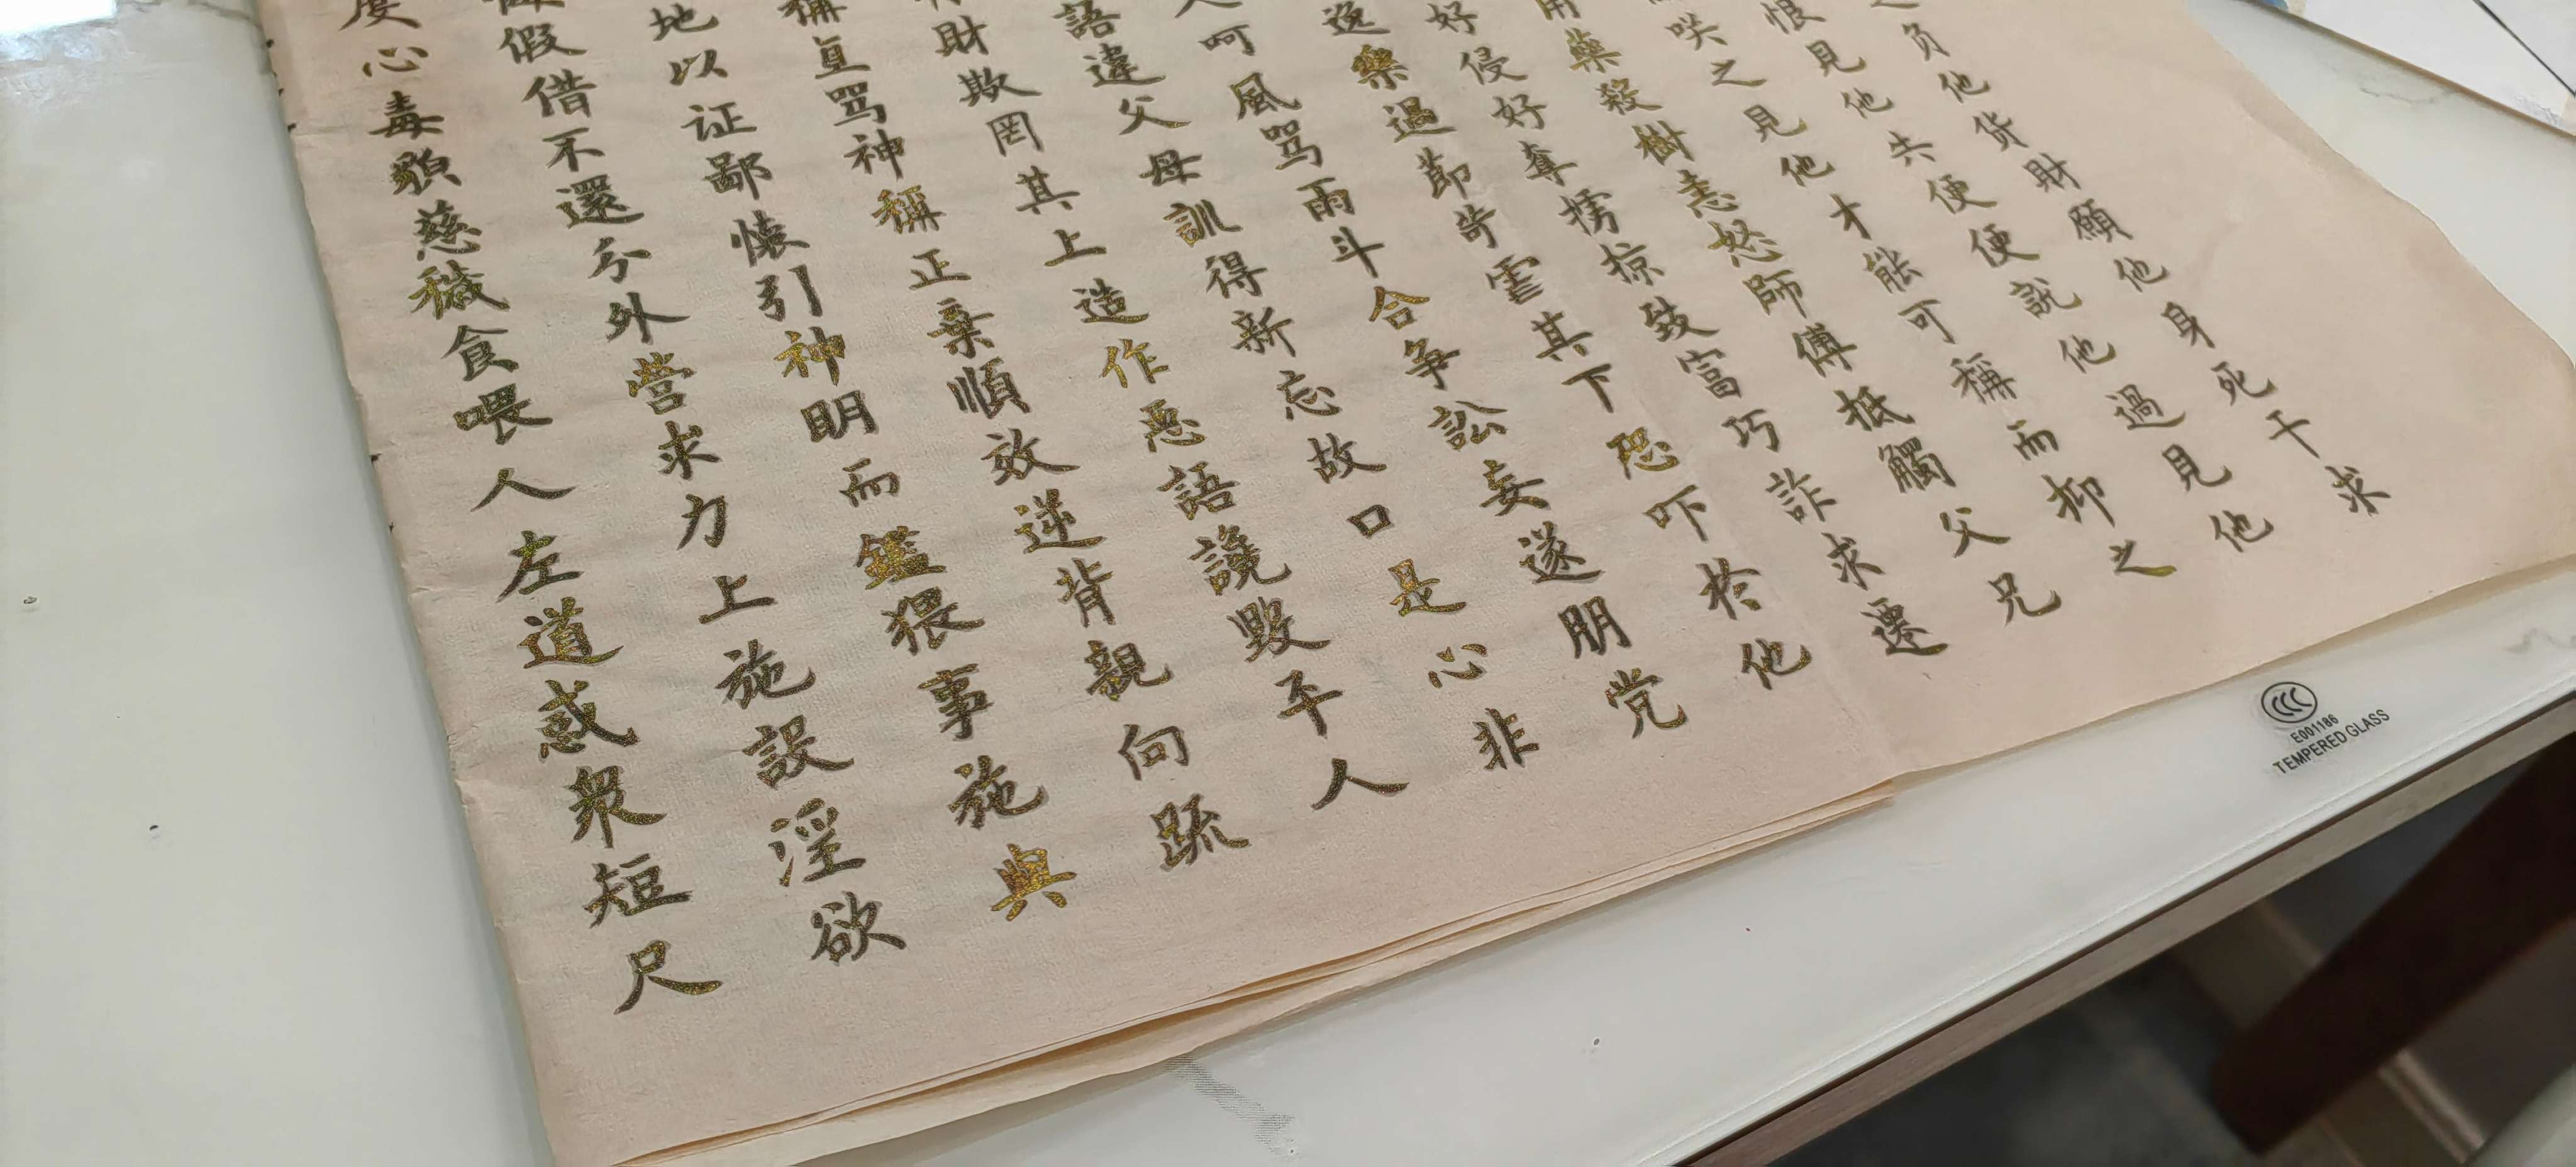 负他货財願他身死干求
恨見他失便便說他過見他
咲之見他才能可稱而抑之
用藥殺樹恚怒師傅抵觸父兄
好侵好奪擄掠致富巧詐求遷
逸樂過節苛虐其下恐吓於他
呵風骂雨斗合争訟妄遂朋党
語違父母訓得新忘故口是心非
財欺罔其上造作惡語讒毀平人
稱直骂神稱正棄順效逆背親向疏
地以证鄙懷引神明而鑑猥事施與
假借不還分外營求力上施設淫欲
度心毒貌慈穢食喂人左道惑衆短尺
E001186
TEMPERED GLASS